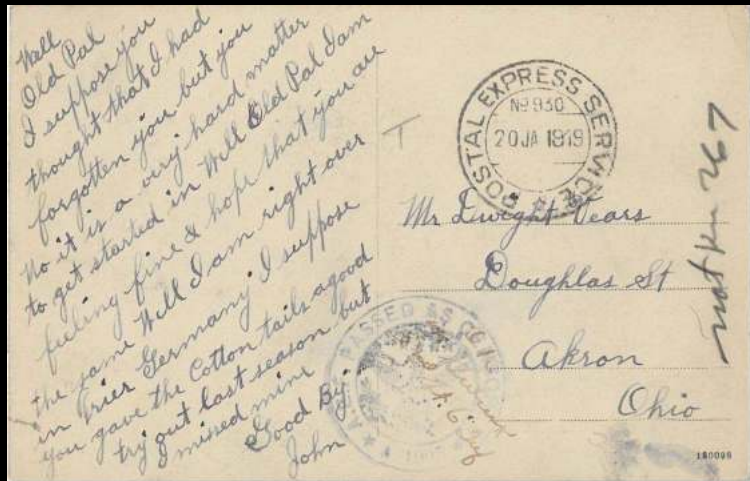 Well
Old Pal
I suppose you
thought that I had
forgotten you but you
No it is a very hard matter
to get started in Well Old Pal I am
feeling fine & hope that you are
the same Well I am right over
in Trier Germany I suppose
you gave the Cotton tails a good
try out last season but
I missed mine
Good By.
John
POSTAL EXPRESS SERVICE
No 930
20 JA 1919
Mr Dwight Vears
Doughlas St
Akron
Ohio
PASSED AS CENSORED
267
150098